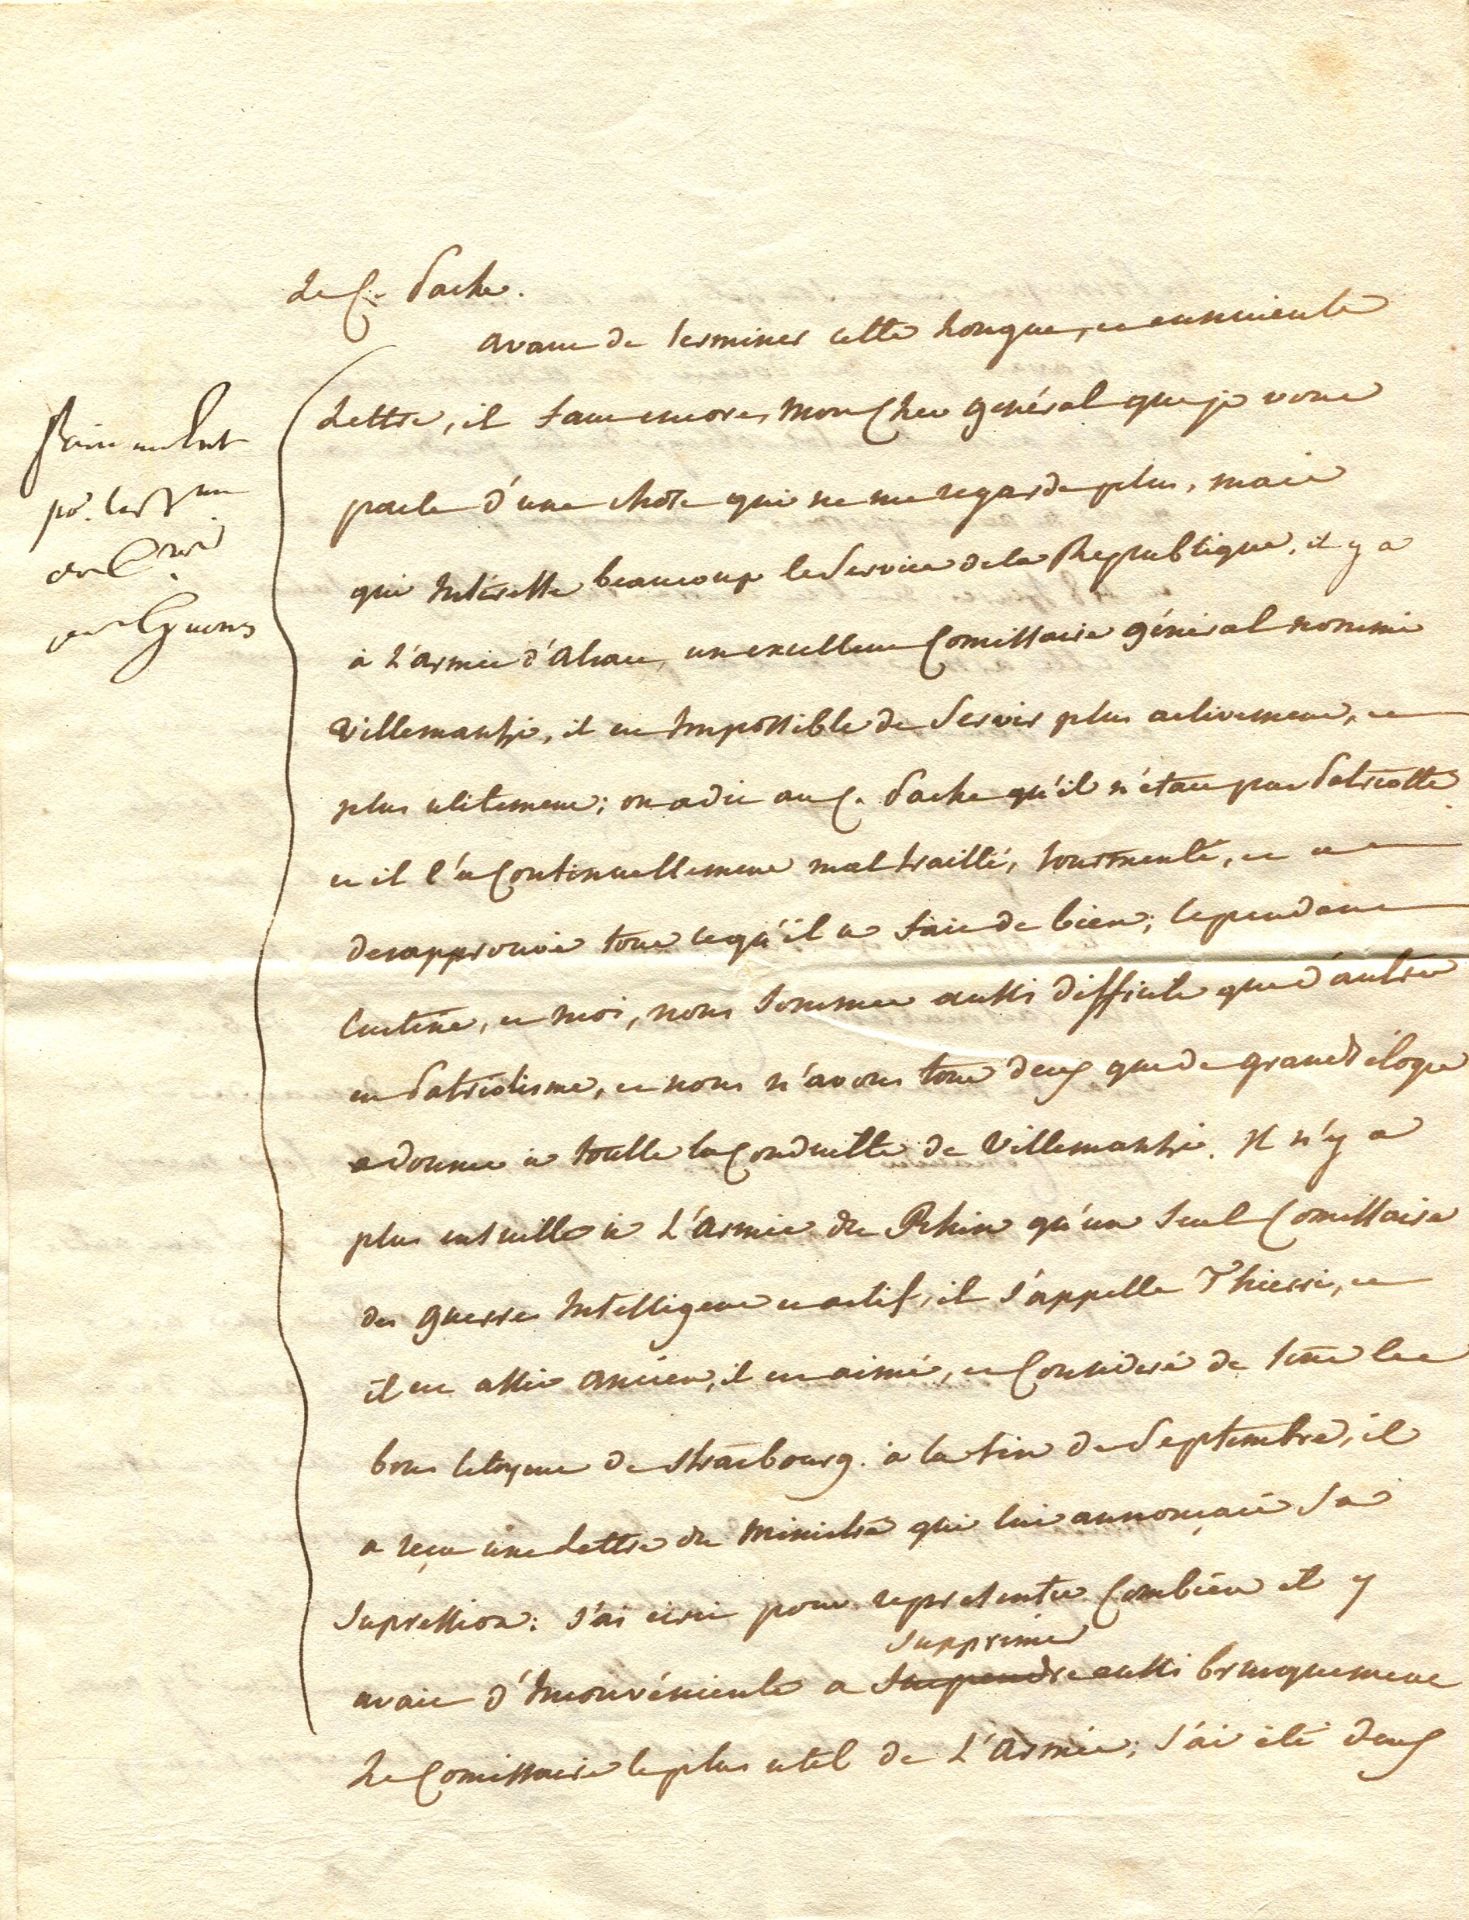 Le C. Pache.
avant de terminer cette longue, et ennuiente
Lettre, il faut encore, mon Cher général que je vous
parle d'une chose qui ne me regarde plus, mais
qui Intéresse beaucoup le Service de la Republique. il y a
à L'armée d'Alsace, un excellent Comissaire général nommé
Villemanzi, il est Impossible de Servir plus activement, et
plus utilement; on a dit au C. Pache qu'il n'étoit pas Patriotte
et il l'a Continuellement mal traitté, tourmenté, et a
desapprouvé tout ce qu'il a fait de bien; cependant
Custine, et moi, nous Sommes aussi difficile que d'autres
en Patriotisme, et nous n'avons tous deux que de grands éloges
a donner à toutte la Conduitte de Villemanzi. Il n'y a
plus ensuitte à L'Armée du Rhin qu'un Seul Comissaire
des guerres Intelligent et actif, il S'appelle Thierri, et
il est assés ancien, il est aimé, et Considéré de tous les
bons Citoyens de Strasbourg. à la fin de Septembre, il
a reçu une Lettre du Ministre qui lui annonçait Sa
Supression: J'ai écrit pour representer Combien il y
Supprimer
avait d'Inconvénients a Suspendre aussi brusquement
Le Comissaire le plus utel de L'Armée; J'ai été deux
Faire un Ext
po. les